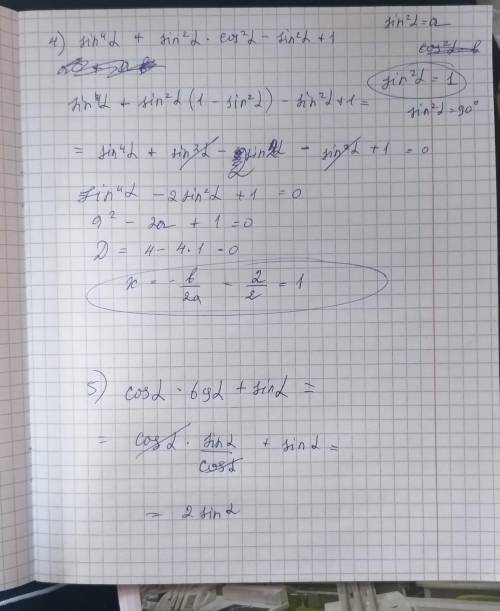 4) sin⁴α + sin²α · cos²α - sin²α + 1
sin²α = a
sin²α = 1
sin²α = 90°
sin⁴α + sin²α (1 - sin²α) - sin²α + 1 =
= sin⁴α + sin²α - sin²α + 1 = 0
sin⁴α - 2sin²α + 1 = 0
a² - 2a + 1 = 0
D = 4 - 4·1 = 0
x = -b/2a = 2/2 = 1
5) cosα · tgα + sinα =
= cosα · sinα/cosα + sinα =
= 2 sinα